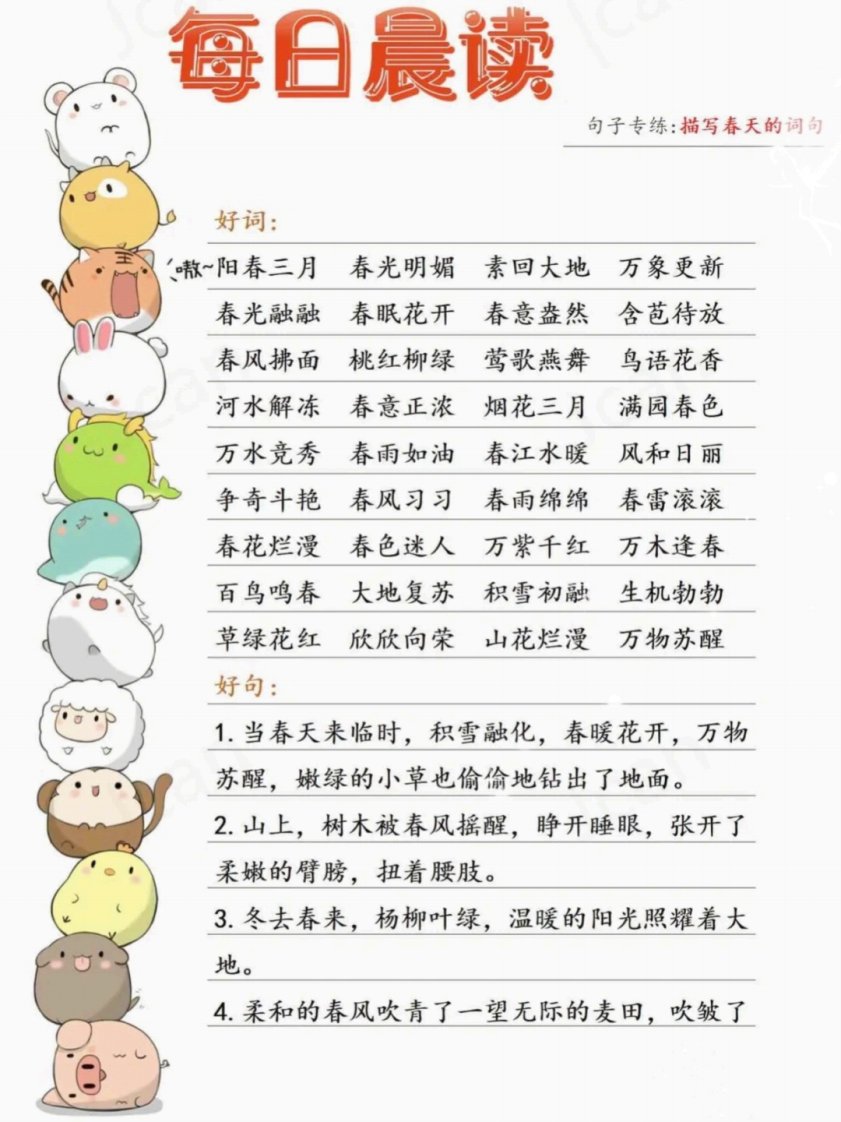 每日晨读
句子专练:描写春天的词句
好词：
嗷~
阳春三月 春光明媚 素回大地 万象更新
春光融融 春眠花开 春意盎然 含苞待放
春风拂面 桃红柳绿 莺歌燕舞 鸟语花香
河水解冻 春意正浓 烟花三月 满园春色
万水竞秀 春雨如油 春江水暖 风和日丽
争奇斗艳 春风习习 春雨绵绵 春雷滚滚
春花烂漫 春色迷人 万紫千红 万木逢春
百鸟鸣春 大地复苏 积雪初融 生机勃勃
草绿花红 欣欣向荣 山花烂漫 万物苏醒
好句：
1. 当春天来临时，积雪融化，春暖花开，万物
苏醒，嫩绿的小草也偷偷地钻出了地面。
2. 山上，树木被春风摇醒，睁开睡眼，张开了
柔嫩的臂膀，扭着腰肢。
3. 冬去春来，杨柳叶绿，温暖的阳光照耀着大
地。
4. 柔和的春风吹青了一望无际的麦田，吹皱了
王